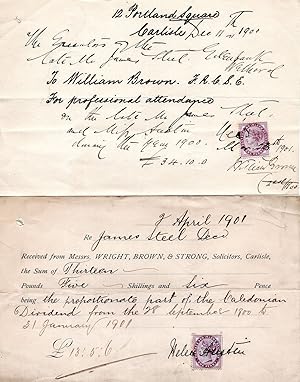 12 Portland Square
Carlisle Dec 11th 1901
The Executors of the
late Mr James Steel, Edenbank
Wetheral
To William Brown. F.R.C.S.E.
For professional attendance
on the late Mr James Steel
and Miss Austin
during the year 1900.
£ 34.10.0
1901.
8 April 1901
Re James Steel Decd
Received from Messrs. WRIGHT, BROWN, & STRONG, Solicitors, Carlisle,
the Sum of Thirteen
Pounds Five Shillings and Six Pence
being the proportionate part of the Caledonian
Dividend from the 28 September 1900 to
31 January 1901
£13:5:6
Austin